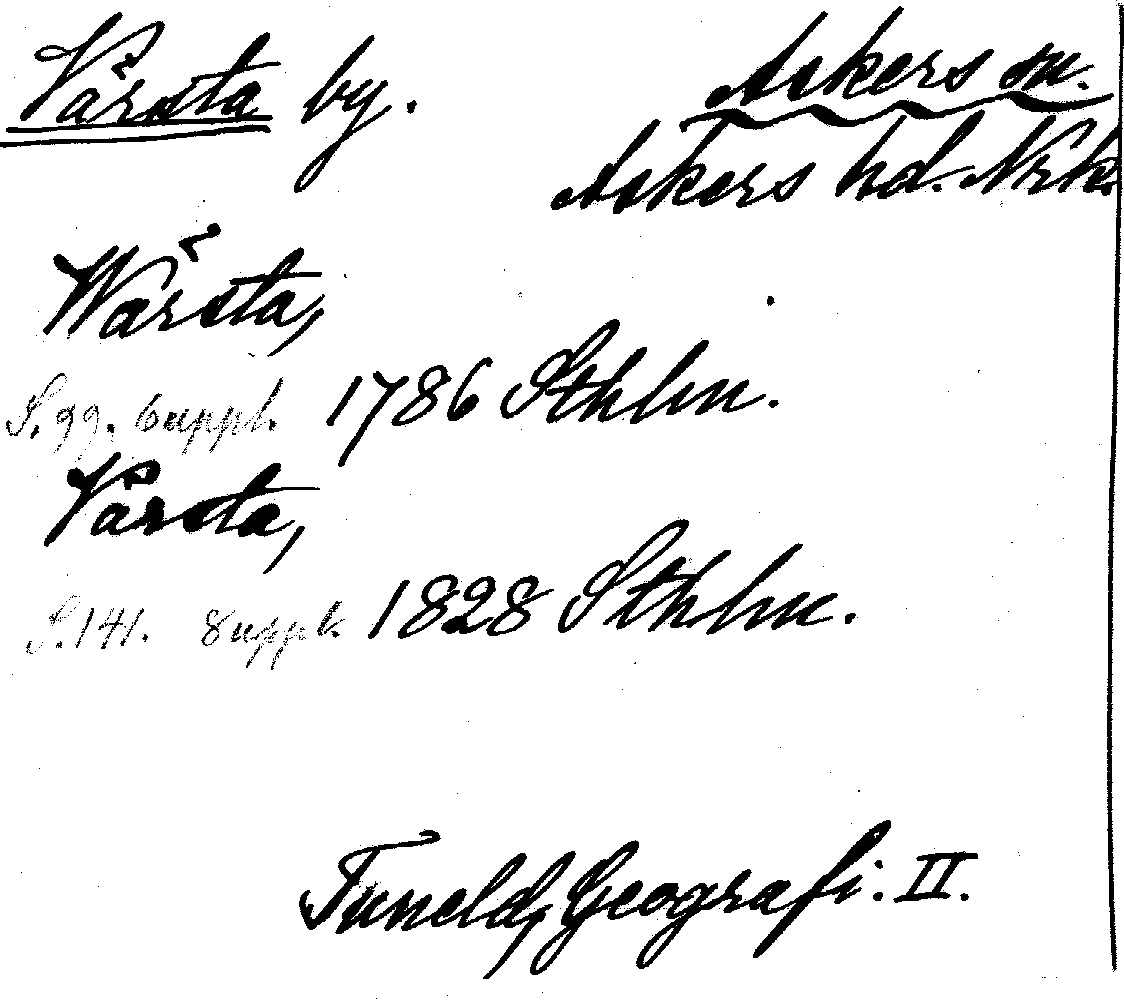 Vårsta by. Askers sn.
Askers hd. Nrk.
Wårsta,
S. 99. 6 uppl. 1786 Sthlm.
Vårsta,
S. 141. 8 uppl. 1828 Sthlm.
Tuneld, Geografi. II.